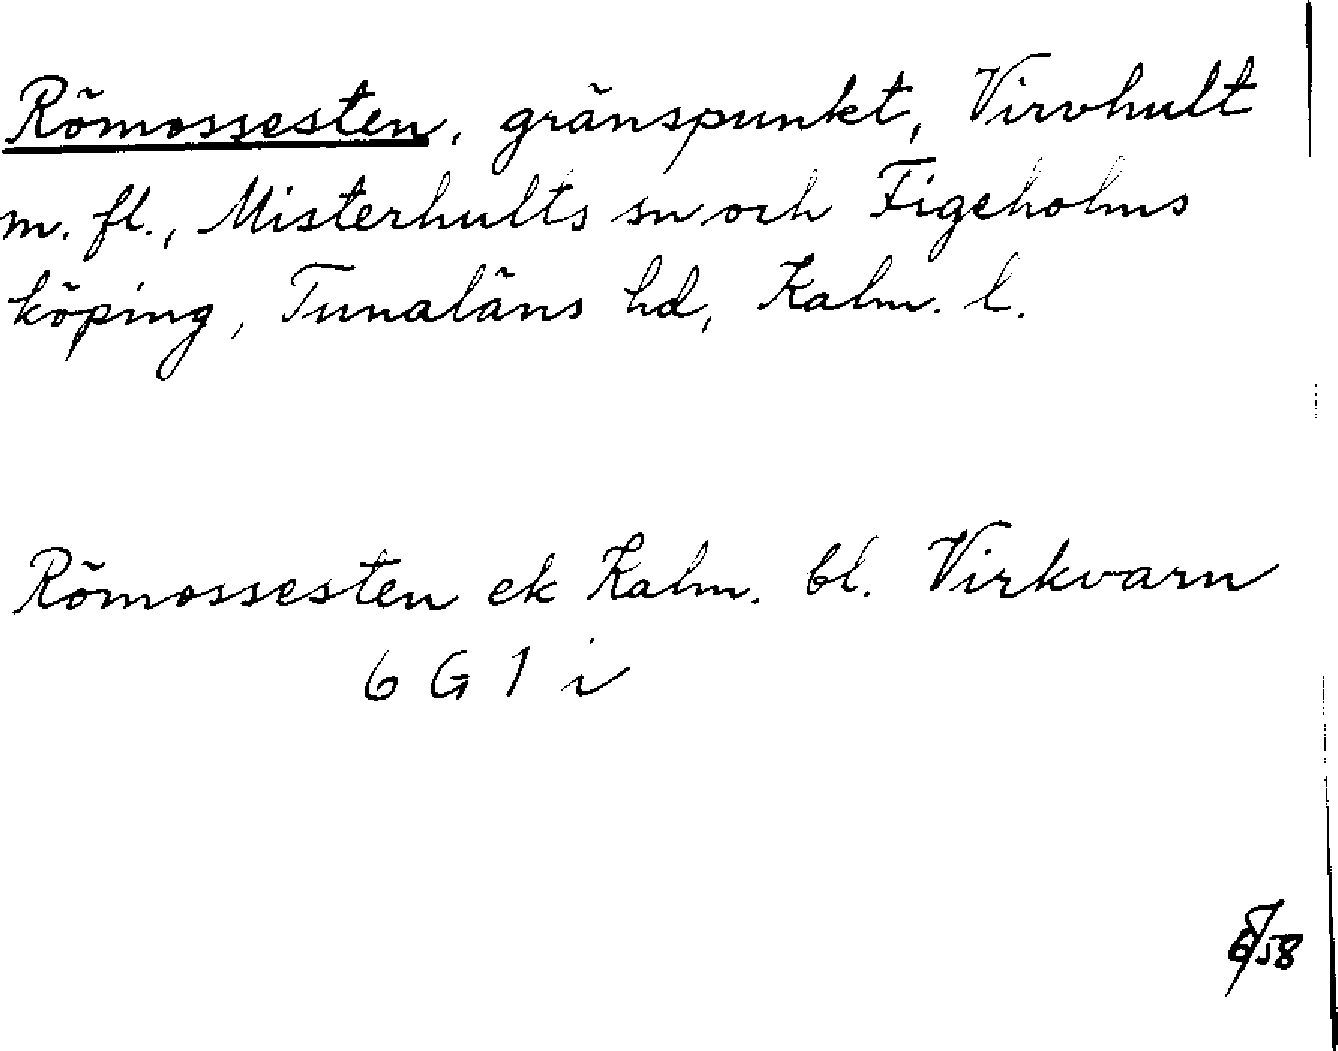 Römossesten, gränspunkt, Virvhult
m. fl., Misterhults sn och Figeholms
köping, Tunaläns hd, Kalm. l.
Römossesten ek Kalm. bl. Virkvarn
6 G 1 i